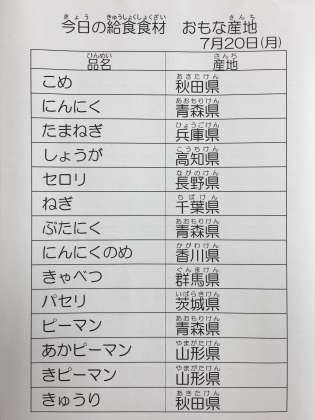 今日の給食食材 おもな産地
7月20日(月)
品名 産地
こめ 秋田県
にんにく 青森県
たまねぎ 兵庫県
しょうが 高知県
セロリ 長野県
ねぎ 千葉県
ぶたにく 青森県
にんにくのめ 香川県
きゃべつ 群馬県
パセリ 茨城県
ピーマン 青森県
あかピーマン 山形県
きピーマン 山形県
きゅうり 秋田県